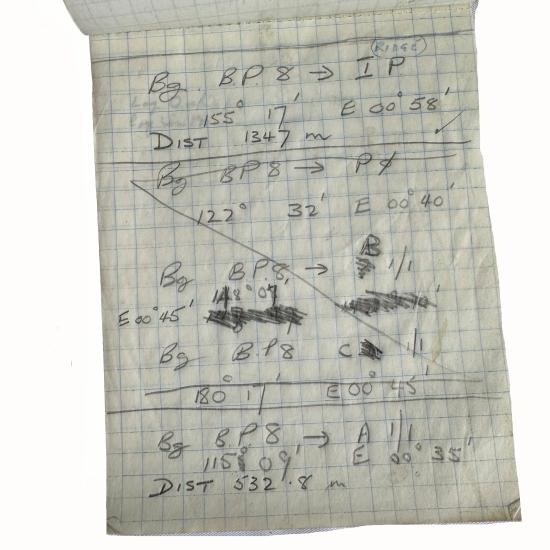 RIDGE
Bg. B.P. 8 → I P
155° 17' E 00° 58'
DIST 1347 m
Bg BP 8 → P
122° 32' E 00° 40'
Bg B.P. 8, → B 1/1
E 00° 45' 148° 07'
Bg B.P 8 C 1/1
180° 17' E 00° 45'
Bg B.P. 8 → A 1/1
115° 09' E 00° 35'
DIST 532.8 m